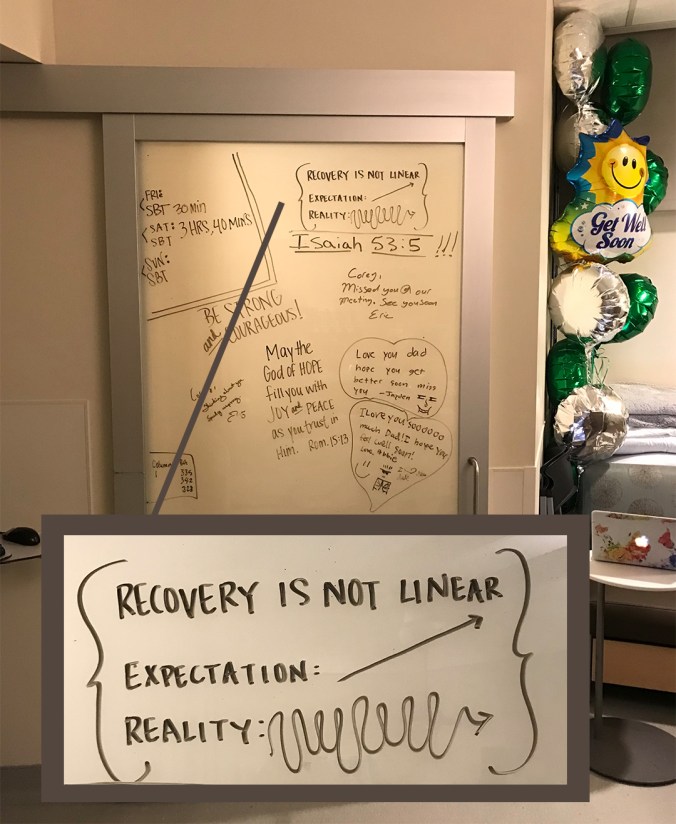 FRI:
SBT 30 min
SAT: 3 HRS, 40 MINS
SBT
SUN:
SBT
RECOVERY IS NOT LINEAR
EXPECTATION:
REALITY:
ISaiah 53:5 !!!
BE STRONG
and COURAGEOUS!
Corey,
Missed you @ our
meeting. See you soon
Eric
May the
God of HOPE
fill you with
JOY and PEACE
as you trust in
Him. Rom. 15:13
Love you dad
hope you get
better soon miss
you - Jayden
I Love you soooooo
much Dad! I hope you
feel well soon!
Love
Get Well
Soon
RECOVERY IS NOT LINEAR
EXPECTATION:
REALITY: